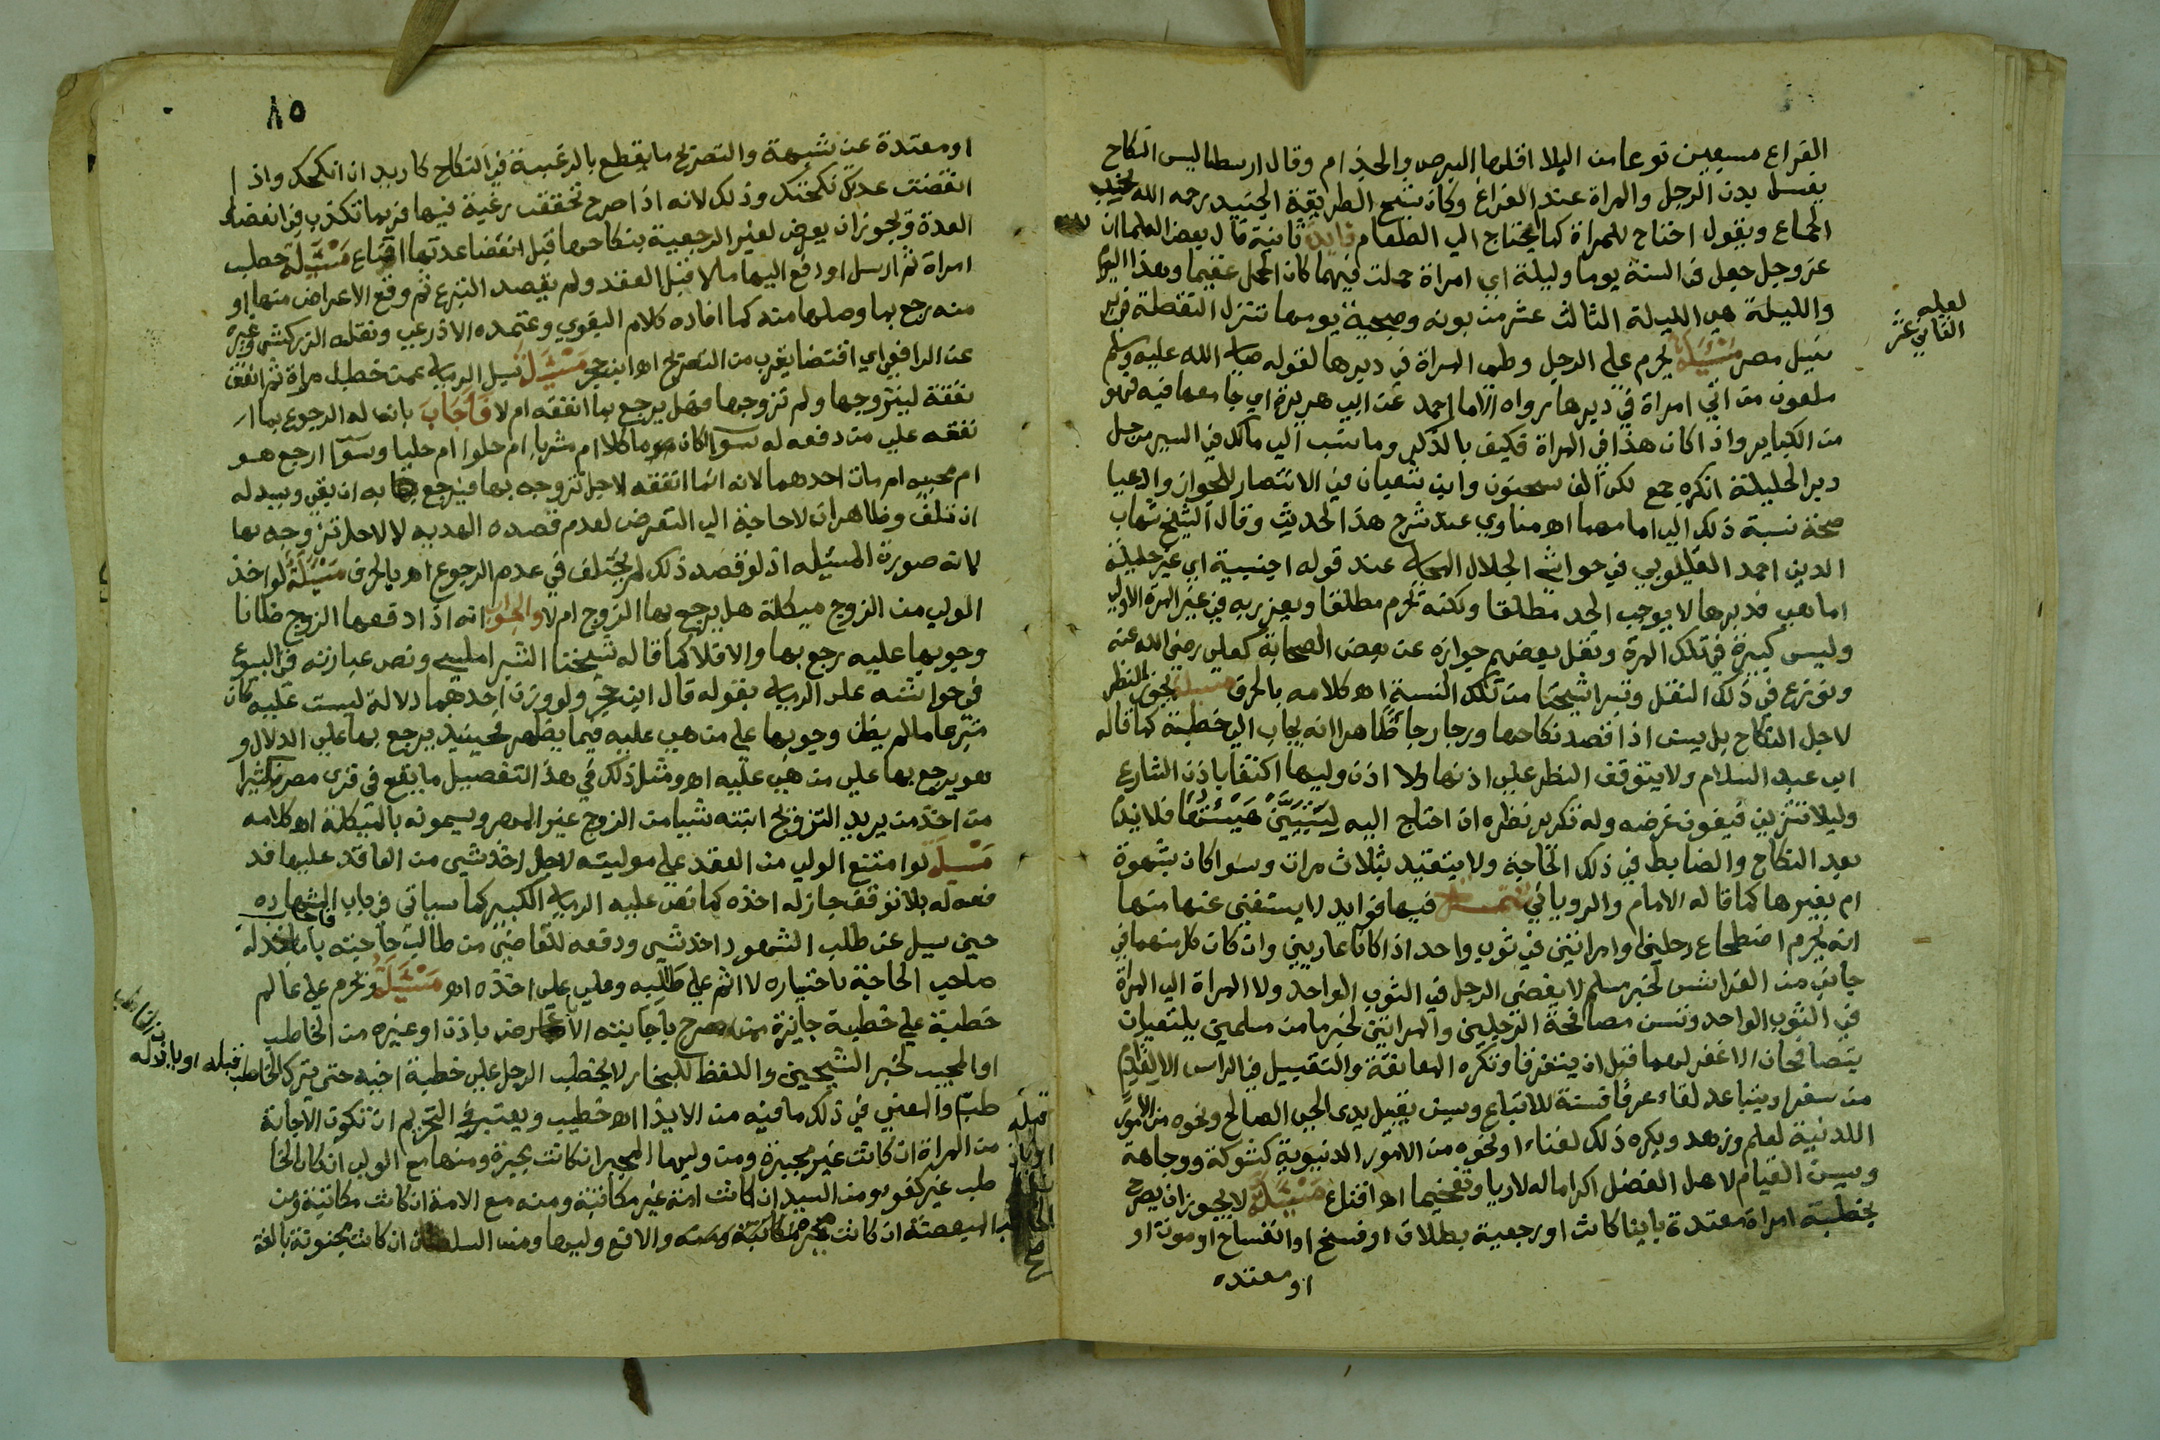 القراع سبعين نوعا من البلا اقلها البرص والجذام وقال ارسطاليس النكاح
يغسل بدن الرجل والمراة عند الفراغ وكان شيخ الطريقة الجنيد رحمه الله يحب
الجماع ويقول احتاج للمراة كما يحتاج الي الطعام فايدة ثانية قال بعض العلما ان
عز وجل جعل في السنة يوما وليلة اي امراة حملت فيهما كان الحمل عقيما وهذا اليوم
والليلة هي الليلة الثالث عشر من بونه وصبيحة يومها تنزل النقطة في
نيل مصر مسئلة يحرم علي الرجل وطي المراة في دبرها لقوله صلي الله عليه وسلم
ملعون من اتي امراة في دبرها رواه الامام احمد عن ابي هريرة اي جامعها فيه فهو
من الكباير واذا كان هذا في المراة فكيف بالذكر وما نسب الي مالك في السير من حل
دبر الحليلة انكره جمع لكن الف سحنون وابن شعبان في الانتصار للجواز وادعيا
صحة نسبة ذلك الي امامهما اه مناوي عند شرح هذا الحديث وقال الشيخ شهاب
الدين احمد القليوبي في حواشي الجلال المحلي عند قوله اجنبية اي غير حليلة
اما هي فدبرها لا يوجب الحد مطلقا ولكنه يحرم مطلقا ويعزر به في غير المرة الاولي
وليس كبيرة في تلك المرة ونقل بعضهم جوازه عن بعض الصحابة كعلي رضي الله عنه
ونوزع في ذلك النقل وتبرا شيخنا من تلك النسبة اه كلامه بالحرف مسئلة يجوز النظر
لاجل النكاح بل يسن اذا قصد نكاحها ورجا رجا ظاهرا انه يجاب الي خطبته كما قاله
ابن عبد السلام ولا يتوقف النظر علي اذنها ولا اذن وليها اكتفا باذن الشارع
وليلا تتزين فيفوت غرضه وله تكرير نظره ان احتاج اليه ليتبين هيئتها فلا يندم
بعد النكاح والضابط في ذلك الحاجة ولا يتقيد بثلاث مرات وسوا كان بشهوة
ام بغيرها كما قاله الامام والروياني تتمة فيها فوايد لا يستغني عنها منها
انه يحرم اضطجاع رجلين وامراتين في ثوب واحد اذا كانا عاريين وان كان كل منهما في
جانب من الفراش لخبر مسلم لا يفضي الرجل في الثوب الواحد ولا المراة الي المراة
في الثوب الواحد وتسن مصافحة الرجلين والمراتين لخبر ما من مسلمين يلتقيان
يتصافحان الا غفر لهما قبل ان يتفرقا وتكره المعانقة والتقبيل في الراس الا لقادم
من سفر او تباعد لقاء عرفا فسنة للاتباع ويسن تقبيل يدي الحي الصالح ونحوه من الامور
الدينية لعلم وزهد ويكره ذلك لغناء او نحوه من الامور الدنيوية كشوكة ووجاهة
ويسن القيام لاهل الفضل اكراما له لا رياء وتفخيما اه اقناع مسئلة لا يجوز ان يصرح
بخطبة امراة معتدة باينا كانت او رجعية بطلاق او فسخ او انفساخ او موت او
او معتده
لعله
الثاني عشر
٨٥
او معتدة عن شبهة والتصريح ما يقطع بالرغبة في النكاح كاريد ان انكحك واذا
انقضت عدتك نكحتك وذلك لانه اذا صرح تحققت رغبة فيها فربما تكذب في انقضاء
العدة ويجوز ان يعرض لغير الرجعية بنكاحها قبل انقضا عدتها اقناع مسئلة خطب
امراة ثم ارسل او دفع اليها مالا قبل العقد ولم يقصد التبرع ثم وقع الاعراض منها او
منه رجع بما وصلها منه كما افاده كلام البغوي وعتمده الاذرعي ونقله الزركشي وغيره
عن الرافعي اي اقتضا يقرب من التصريح اه ابن حجر مسئلة سيل الرملي عمن خطب امراة ثم انفق
نفقة ليتزوجها ولم تزوجها فهل يرجع بما انفقه ام لا فاجاب بان له الرجوع بما
نفقه علي من دفعه له سوا كان ماكلا ام مشربا ام حلوا ام حليا وسوا رجع هو
ام مجيبه ام مات احدهما لانه انما انفقه لاجل تزوجه بها فيرجع به ان بقي وببدله
ان تلف وظاهر ان لا حاجة الي التعرض لعدم قصده الهدية لا لاجل تزوجه بها
لانه صورة المسئله اذ لو قصد ذلك لم يختلف في عدم الرجوع اه بالحرف مسئلة لو اخذ
الولي من الزوج ميكلة هل يرجع بها الزوج ام لا والجواب انه اذا دفعها الزوج ظانا
وجوبها عليه رجع بها والا فلا كما قاله شيخنا الشبراملسي ونص عبارته في البيوع
في حواشيه علي الرملي بقوله قال ابن حجر ولو وزن احدهما دلالة ليست عليه كان
متبرعا ما لم يظن وجوبها علي من هي عليه فيما يظهر فحينيذ يرجع بها علي الدلال و
هو يرجع بها علي من هي عليه اه ومثل ذلك في هذا التفصيل ما يقع في قري مصر كثيرا
من اخذ من يريد التزويج ابنته شيا من الزوج غير المهر ويسمونه بالميكلة اه كلامه
مسيلة لو امتنع الولي من العقد علي موليته لاجل اخذ شي من العاقد عليها فد
فعه له بلا توقف جاز له اخذه كما نص عليه الرملي الكبير كما سياتي في باب الشهاده
حين سيل عن طلب الشهود اخذ شي ودفعه للقاضي من طالب حاجته فاجاب بان ما اخذ له
صاحب الحاجة باختياره لا اثم علي طالبه وعلي اخذه اه مسئلة وتحرم علي عالم
خطبة علي خطبة جايزة ممن صرح باجابته الا باعراض باذن او غيره من الخاطب
او المجيب لخبر الشيخين واللفظ للبخار لا يخطب الرجل علي خطبة اخيه حتي يترك الخاطب قبله او ياذن له
طب والمعني في ذلك ما فيه من الايذا اه خطيب ويعتبر في التحريم ان تكون الاجابة
من المراة ان كانت غير مجبرة ومن وليها المجبر ان كانت مجبرة ومنها مع الولي ان كان الخا
طب غير كفو ومن السيد ان كانت امة غير مكاتبة ومنه مع الامة ان كانت مكاتبة ومن
المبعضة ان كانت غير مجبرة والا فمع وليها ومن السلطان ان كانت مجنونة بالغة
قبله